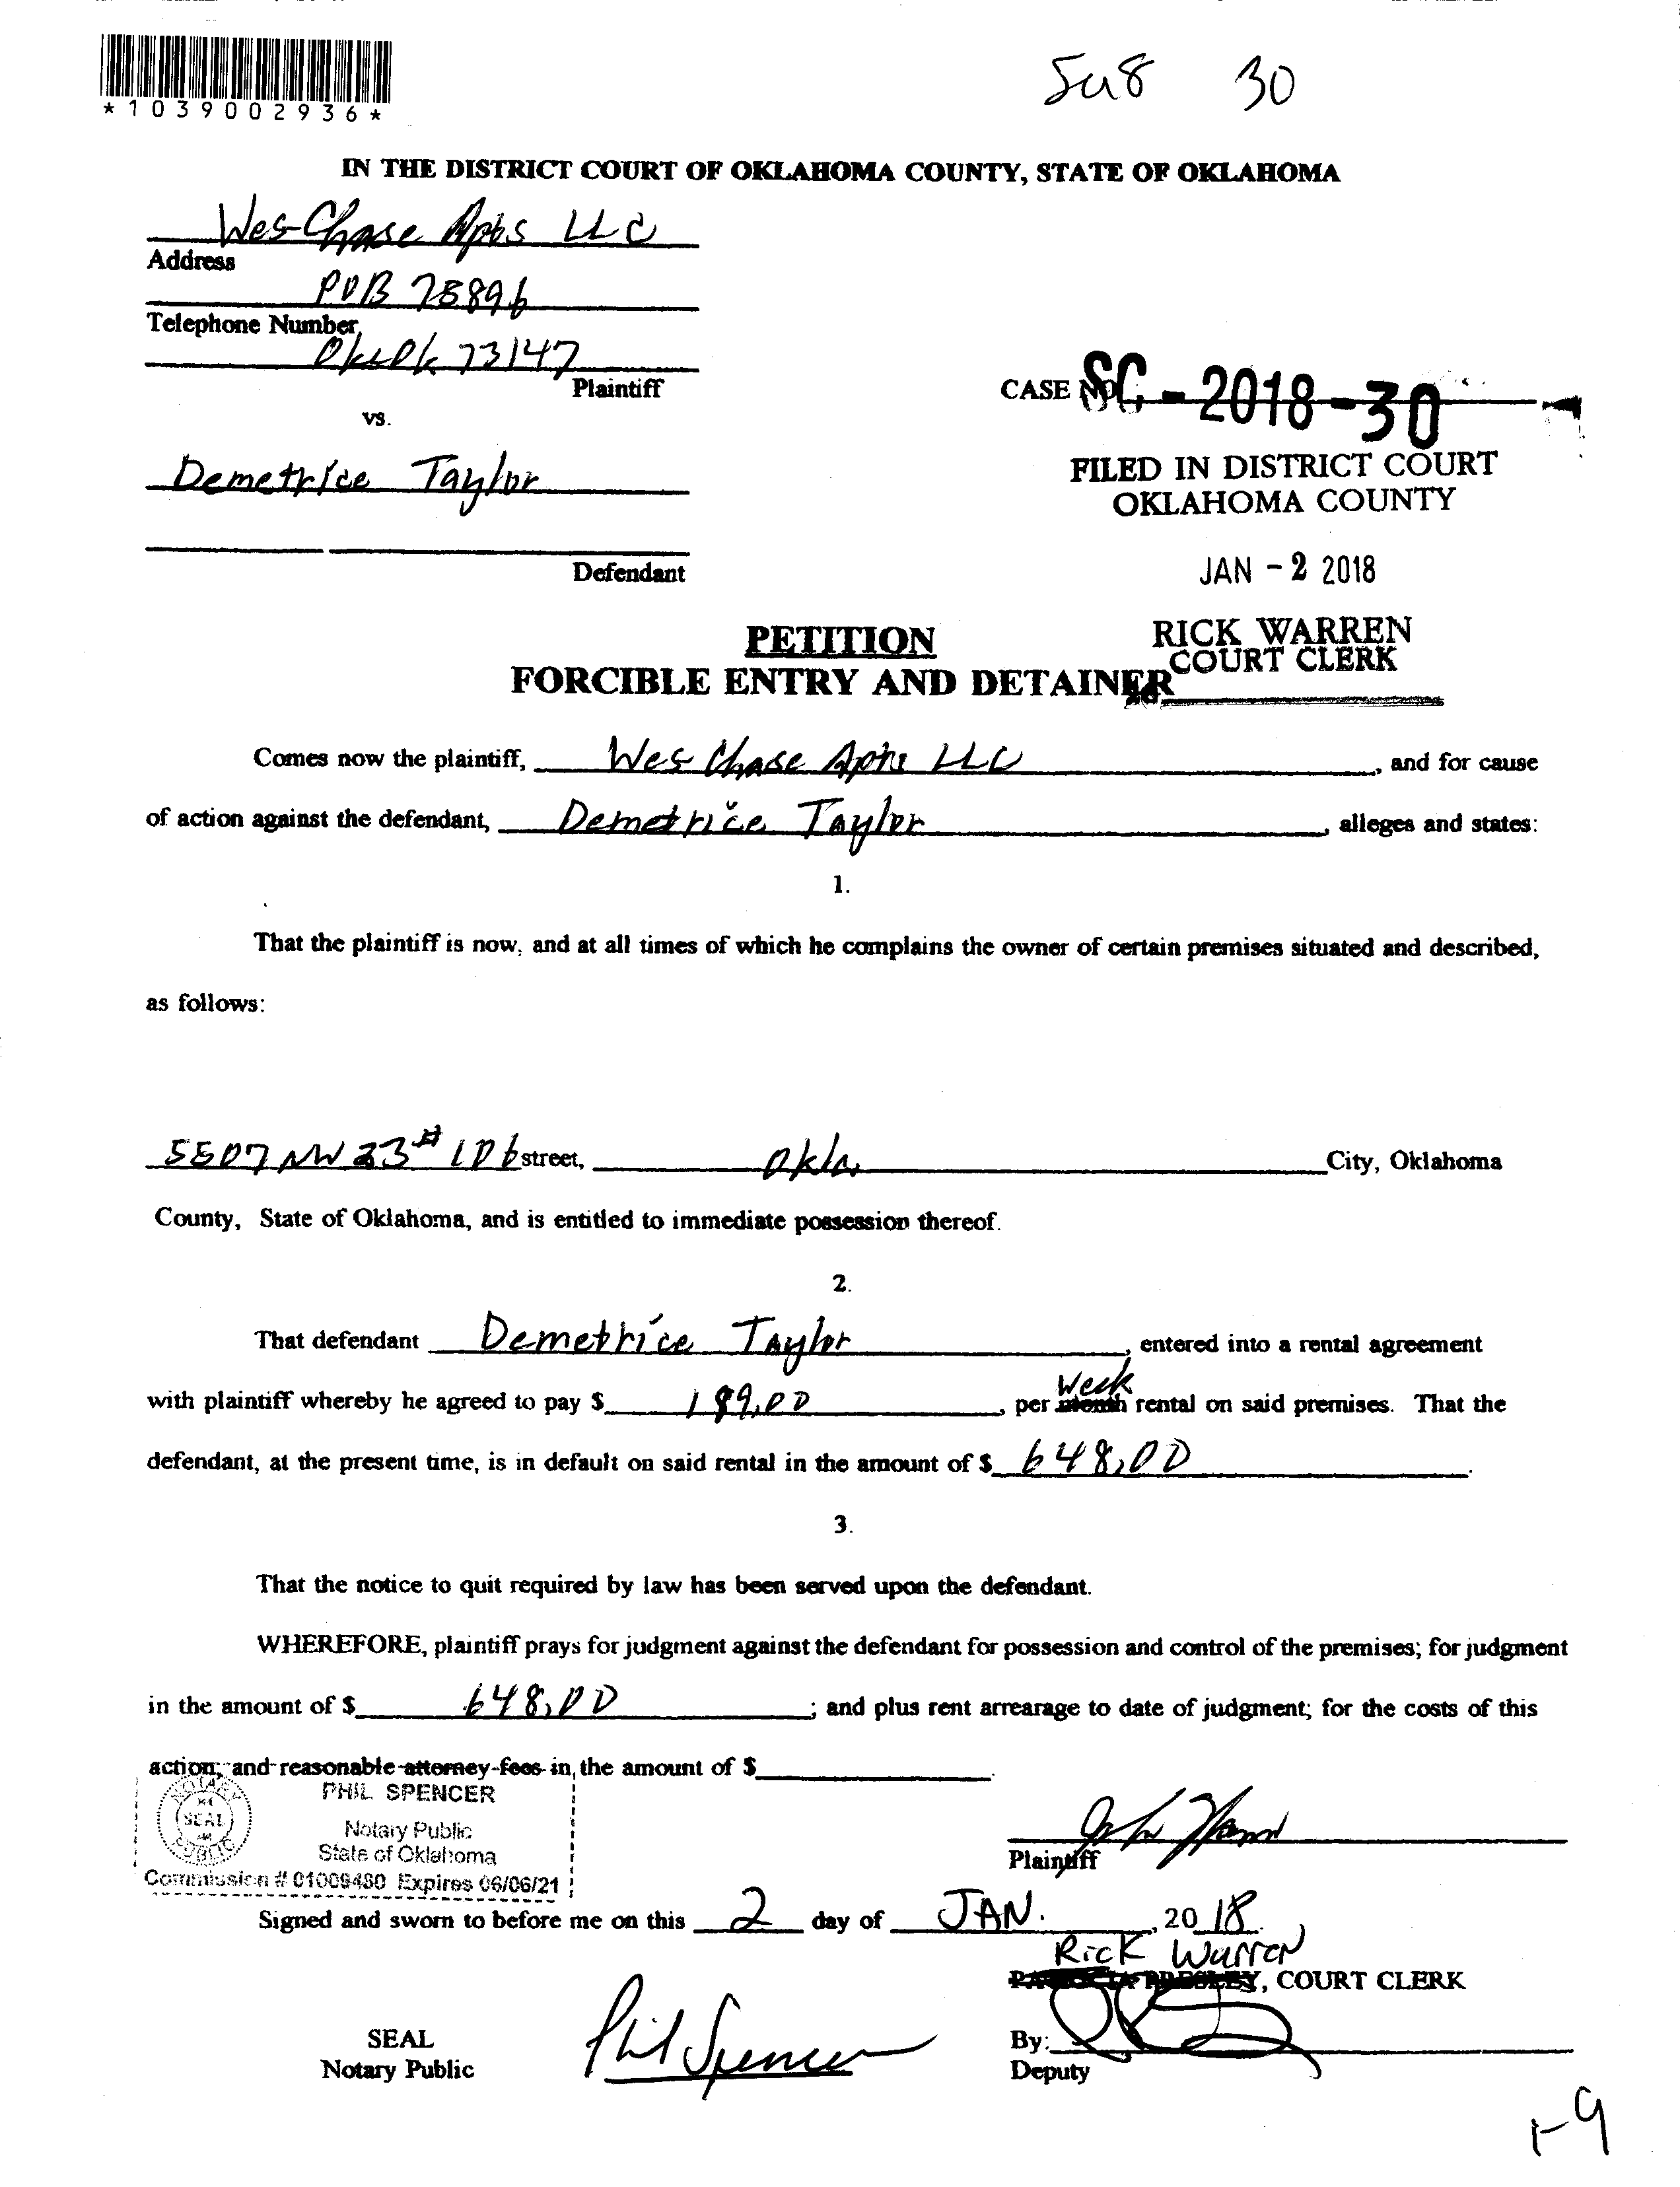 *1039002936*
5u8 30
IN THE DISTRICT COURT OF OKLAHOMA COUNTY, STATE OF OKLAHOMA
Wes Chase Apts LLC
Address
POB 75896
Telephone Number,
OkcOk 73147
Plaintiff
vs.
CASE NO. SC-2018-30
Demetrice Taylor
FILED IN DISTRICT COURT
OKLAHOMA COUNTY
Defendant
JAN - 2 2018
PETITION
RICK WARREN
COURT CLERK
FORCIBLE ENTRY AND DETAINER
Comes now the plaintiff, Wes Chase Apts LLC, and for cause
of action against the defendant, Demetrice Taylor, alleges and states:
1.
That the plaintiff is now, and at all times of which he complains the owner of certain premises situated and described,
as follows:
5507 NW 23 # 106 street, Okla. City, Oklahoma
County, State of Oklahoma, and is entitled to immediate possession thereof.
2.
That defendant Demetrice Taylor, entered into a rental agreement
with plaintiff whereby he agreed to pay $ 189.00, per month Week rental on said premises. That the
defendant, at the present time, is in default on said rental in the amount of $ 648.00.
3.
That the notice to quit required by law has been served upon the defendant.
WHEREFORE, plaintiff prays for judgment against the defendant for possession and control of the premises; for judgment
in the amount of $ 648.00; and plus rent arrearage to date of judgment; for the costs of this
action, and reasonable attorney fees in the amount of $.
PHIL SPENCER
NOTARY SEAL PUBLIC
Notary Public
State of Oklahoma
Plaintiff
Commission # 01009480 Expires 06/06/21
Signed and sworn to before me on this 2 day of JAN., 20 18.
Rick Warren
, COURT CLERK
SEAL
Notary Public
Phil Spencer
By:
Deputy
1-9